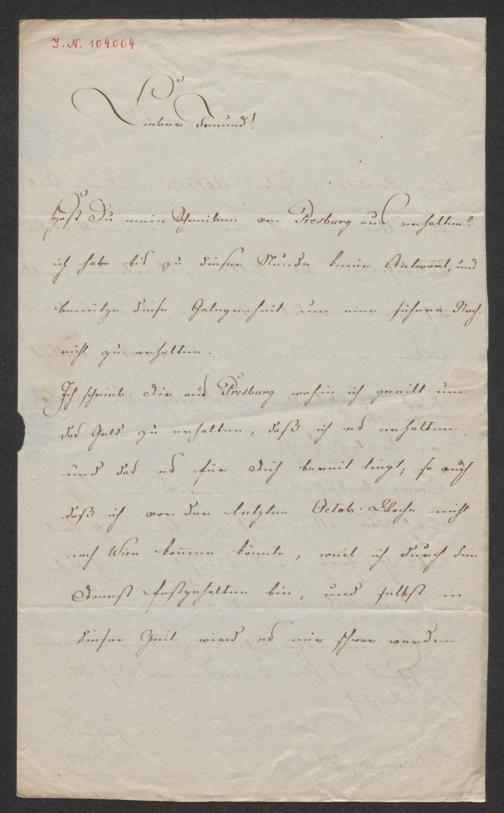 I. N. 104004
Lieber Freund!
Hast Du mein Schreiben von Presburg aus erhalten?
ich habe bis zu dieser Stunde keine Antwort, und
benütze diese Gelegenheit um eine sichere Nach
richt zu erhalten.
Ich schrieb Dir aus Presburg wohin ich geeilt um
das Geld zu erhalten, daß ich es erhalten
und das es für Dich bereit liegt; so auch
daß ich vor der letzten Octob. Woche nicht
nach Wien kommen könnte, weil ich durch den
Dienst festgehalten bin, und selbst in
dieser Zeit wird es mir schwer werden